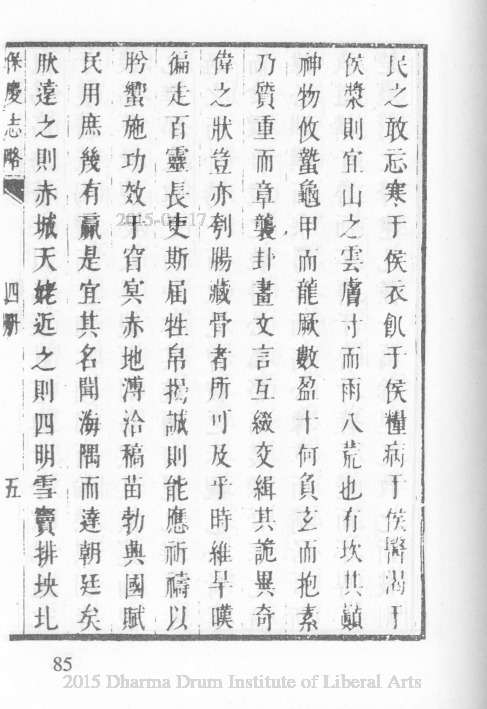 民之敢忘寒于侯衣飢于侯糧病于侯醫渴于
侯漿則宜山之雲膚寸而雨八荒也有坎其顛
神物攸蟄龜甲而龍厥數盈十何負玄而抱素
乃質重而章襲卦畫文言互綴交緝其詭異奇
偉之狀豈亦刳腸藏骨者所可及乎時維旱暵
徧走百靈長史斯屆牲帛揭誠則能應祈禱以
肹蠁施功效于窅冥赤地溥洽稿苗勃興國賦
民用庶幾有贏是宜其名聞海隅而達朝廷矣
肰遠之則赤城天姥近之則四明雪竇排坱圠
保慶志略 四册 五
85
2015 Dharma Drum Institute of Liberal Arts